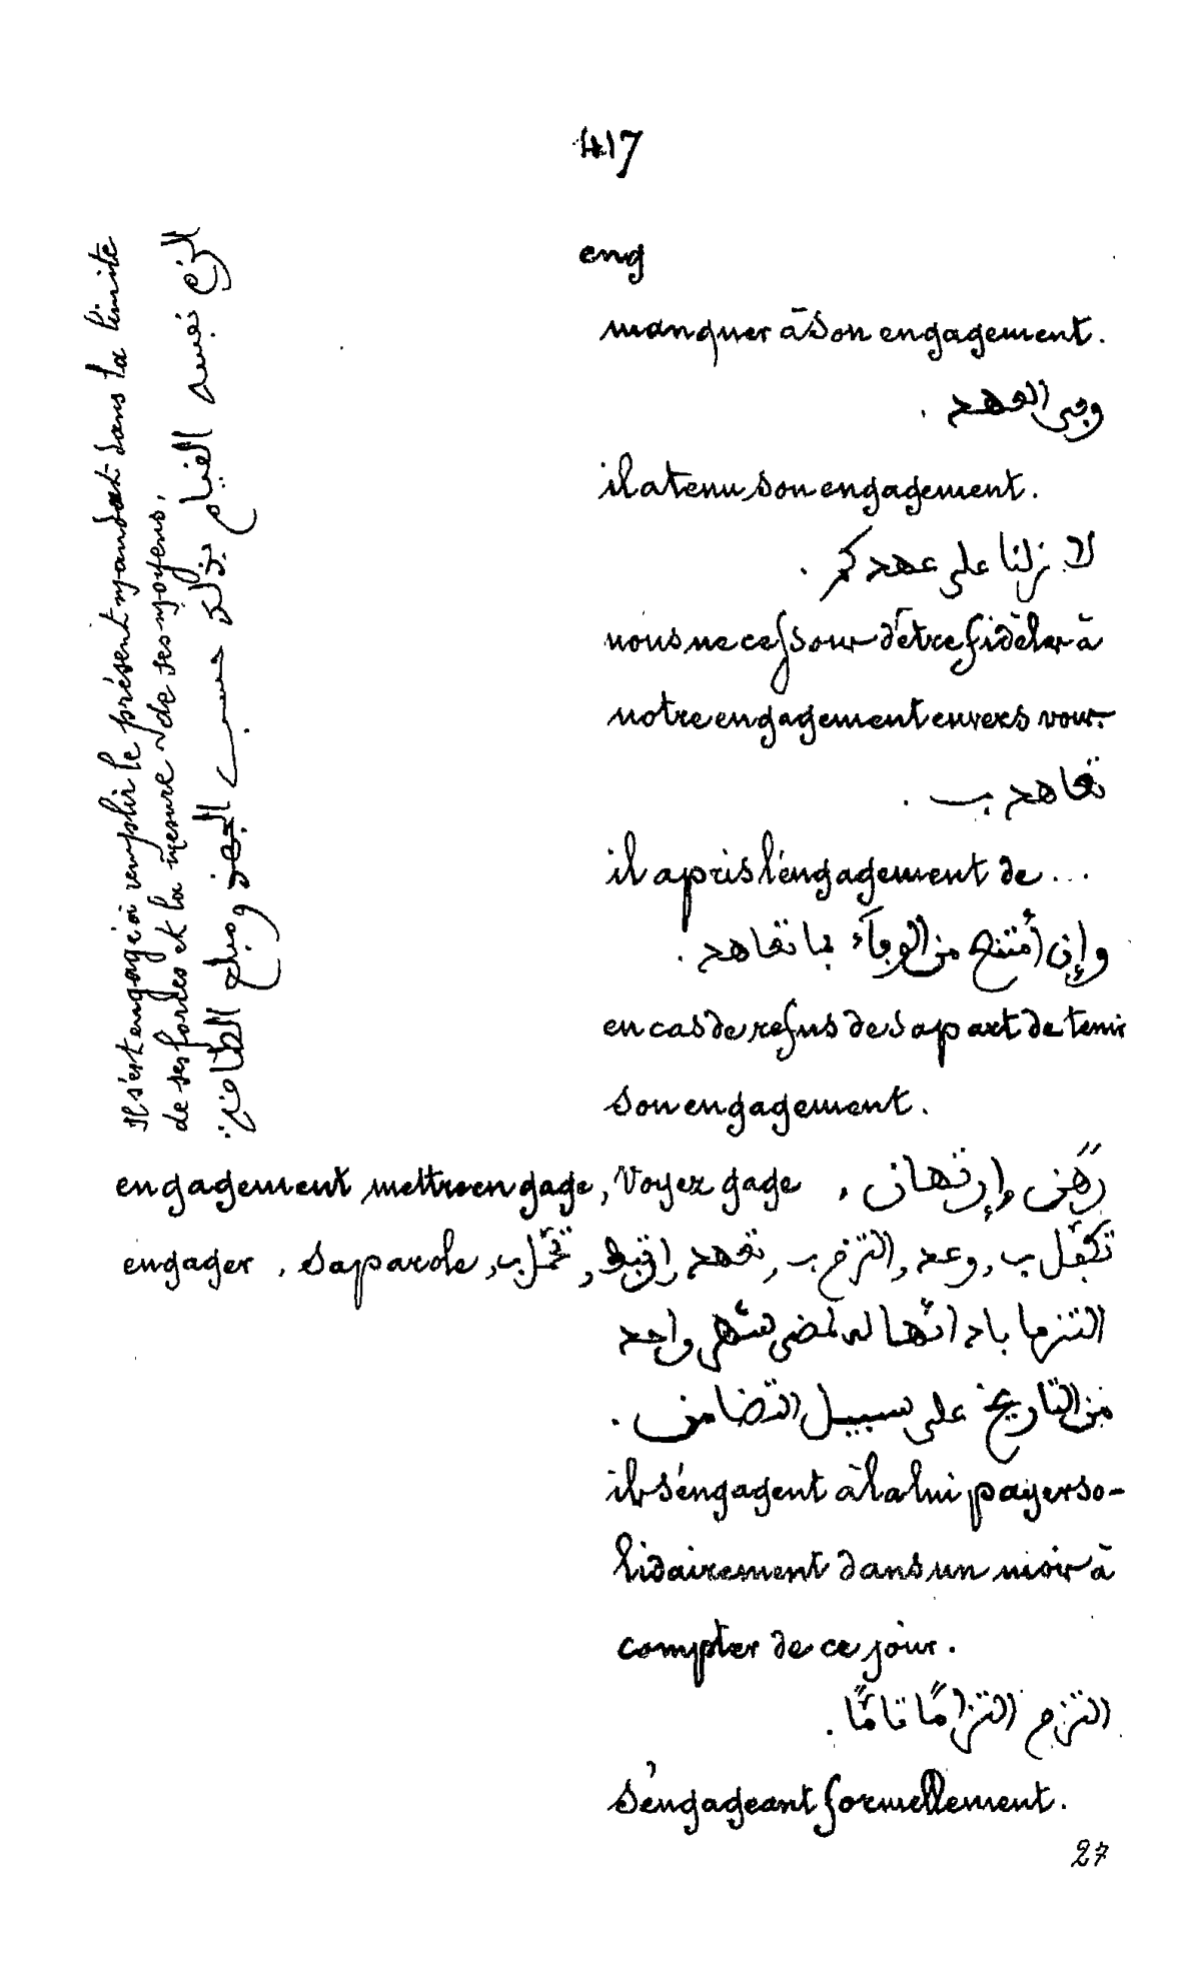 417
eng
manquer à son engagement.
وفى العهد.
il a tenu son engagement.
لا زلنا على عهدكم.
nous ne cessons d'être fidèles à
notre engagement envers vous.
تعاهد ب.
il a pris l'engagement de...
وإن أمتنع من الوفآء بما تعاهد.
en cas de refus de sa part de tenir
son engagement.
engagement, mettre en gage, Voyez gage, رَهْن وإرتهان
engager, sa parole, تكفّل ب, وعد, التزم ب, تعهد, تحمّل ب
التزما باد ائها له لمضى شهر واحد
من التاريخ على سبيل التضامن.
ils s'engagent à la lui payer so-
lidairement dans un mois à
compter de ce jour.
التزم التزامًا تامًّا.
s'engageant formellement.
27
Il s'est engagé à remplir le présent mandat dans la limite
de ses forces et la mesure de ses moyens,
الزم نفسه القيام بذلك حسب الجهد ومبلغ الطاقة.